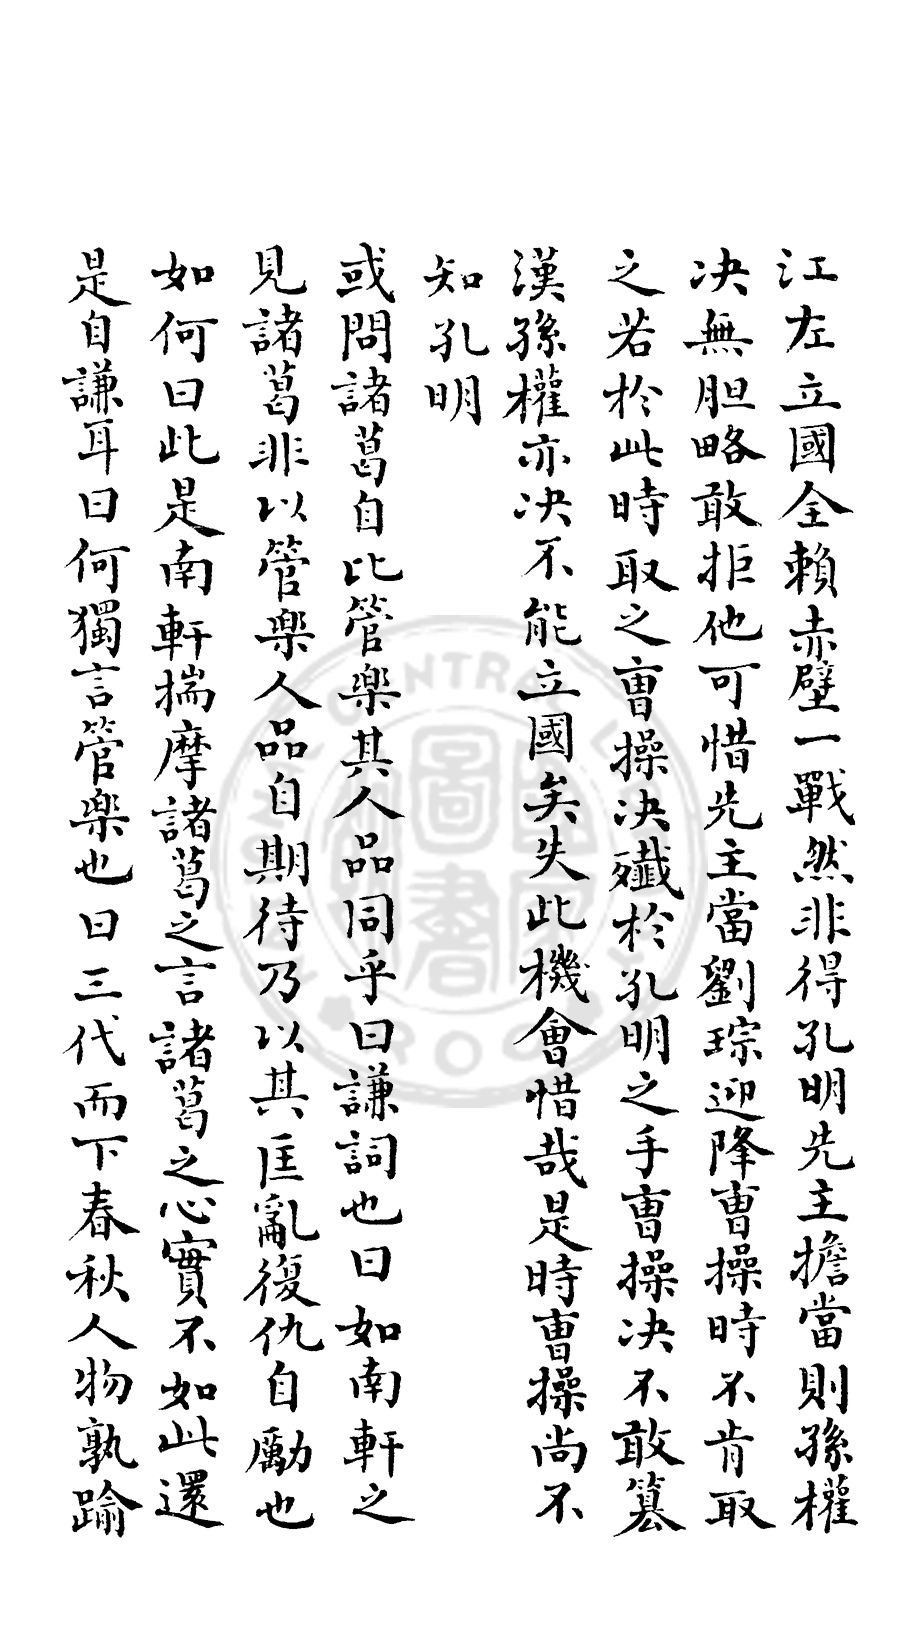 江左立國全賴赤壁一戰然非得孔明先主擔當則孫權
决無胆略敢拒他可惜先主當劉琮迎降曺操時不肯取
之若於此時取之曺操决殲於孔明之手曺操决不敢篡
漢孫權亦决不能立國矣失此機會惜哉是時曺操尚不
知孔明
或問諸葛自比管樂其人品同乎曰謙詞也曰如南軒之
見諸葛非以管樂人品自期待乃以其匡亂復仇自勵也
如何曰此是南軒揣摩諸葛之言諸葛之心實不如此還
是自謙耳曰何獨言管樂也曰三代而下春秋人物孰踰